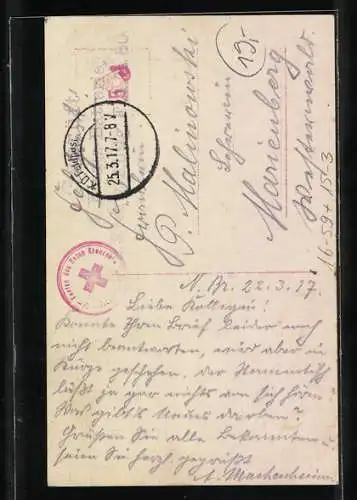 13,-
K.D. Feldpost
25.3.17. 7-8 V.
5 d
Fräulein
P. Malinowski
Lehrerin
Marienberg
Westerwald
16-59+ 15/-3
des Roten Kreuzes
N. Br. 22.3.17.
Liebe Kollegin!
Konnte Ihren Brief leider noch
nicht beantworten, wird aber in
Kürze geschehen, der
läßt ja gar nichts von sich hören.
Was gibt's Neues daroben?
Grüßen Sie alle Bekannten u.
seien Sie herzl. gegrüßt
Machenheimer